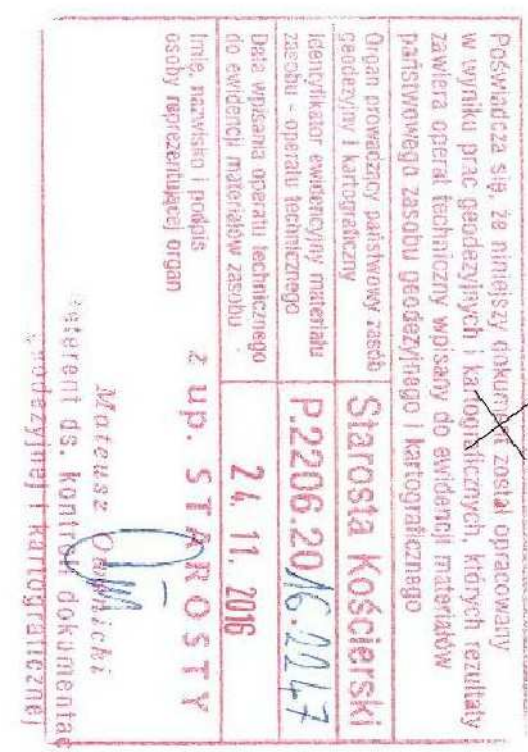 Poświadcza się, że niniejszy dokument został opracowany
w wyniku prac geodezyjnych i kartograficznych, których rezultaty
zawiera operat techniczny wpisany do ewidencji materiałów
państwowego zasobu geodezyjnego i kartograficznego
Organ prowadzący państwowy zasób
geodezyjny i kartograficzny
Starosta Kościerski
Identyfikator ewidencyjny materiału
zasobu - operatu technicznego
P.2206.2016.2247
Data wpisania operatu technicznego
do ewidencji materiałów zasobu
24. 11. 2016
Imię, nazwisko i podpis
osoby reprezentującej organ
z up. STAROSTY
Mateusz
Referent ds. kontroli dokumentac
geodezyjnej i kartograficznej